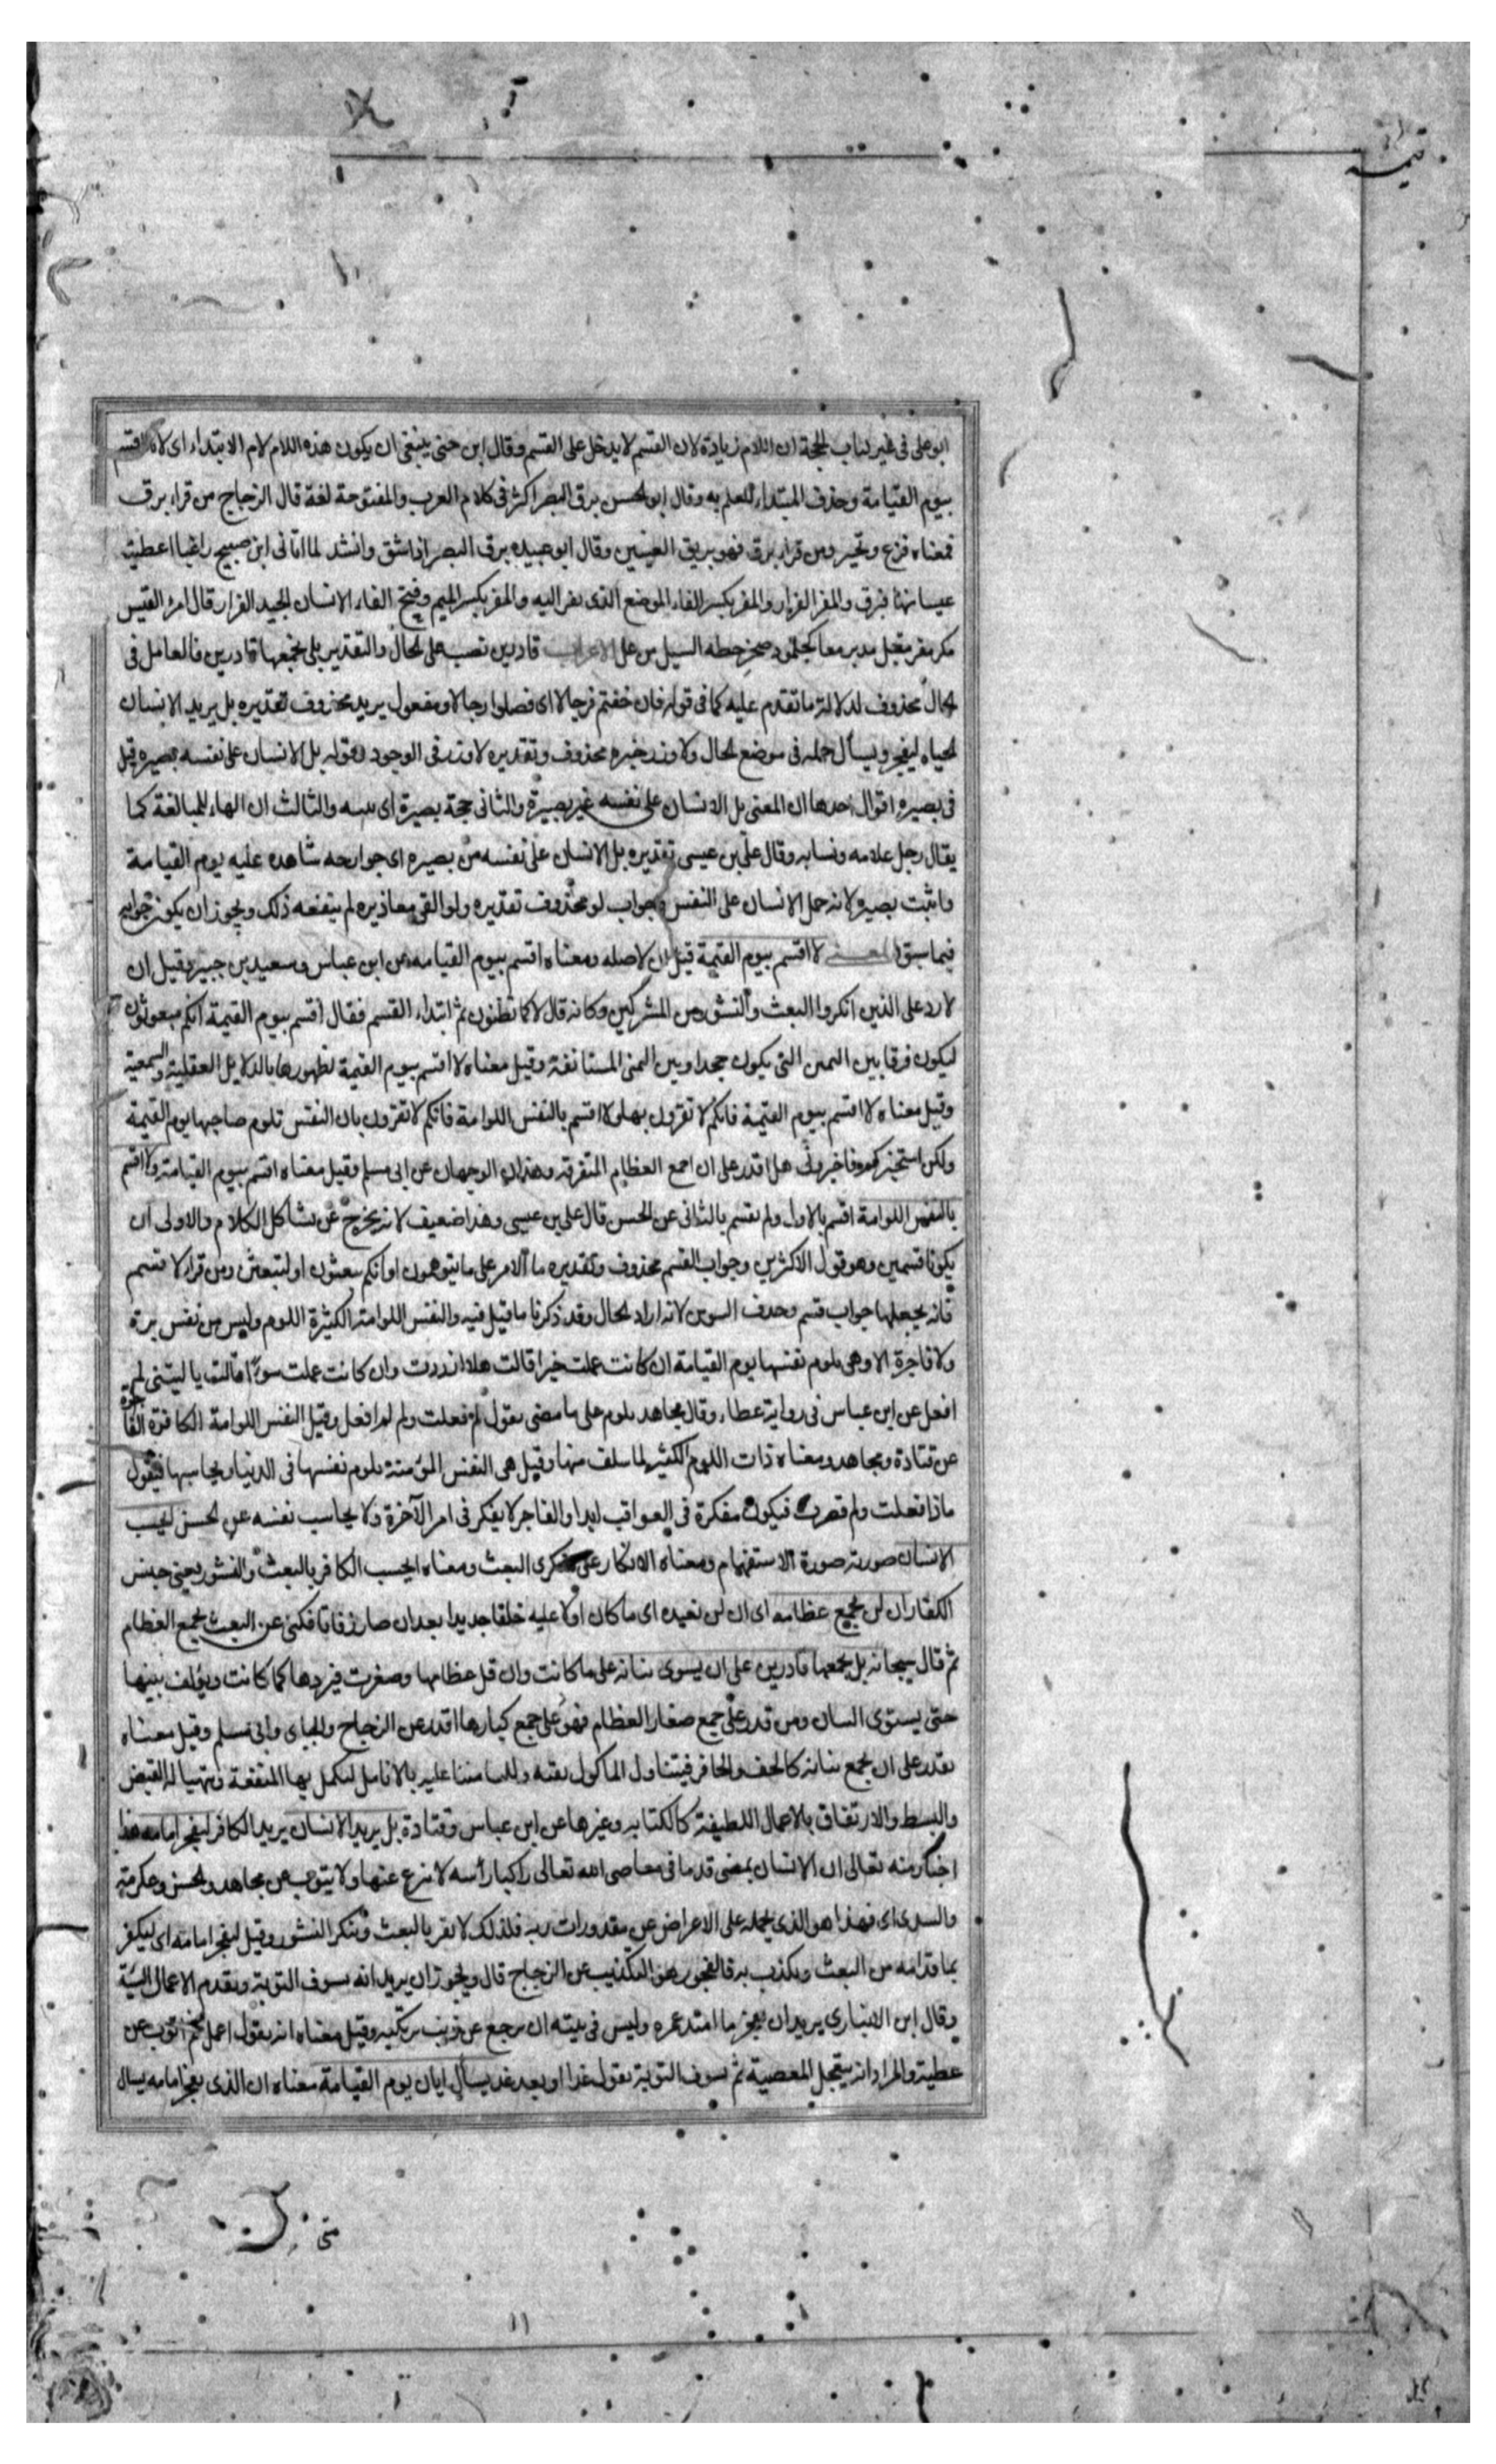 قيمه
ابو على فى غير كتاب الحجة ان اللام زيادة لان القسم لا يدخل على القسم وقال ابن جنى ينبغى ان يكون هذه اللام لام الابتداء اى لانا اقسم
بيوم القيامة وحذف المبتداء للعلم به وقال ابو الحسن برق البصر اكثر فى كلام العرب والمفتوحة لغة قال الزجاج من قراء برق
فمعناه فزع وتحير ومن قراء برق فهو بريق العينين وقال ابو عبيده برق البصر اذا شق وانشد لما اتانى ابن صبيح راغبا اعطيته
عيسا منها فبرق والمفر الفرار والمفر بكسر الفاء الموضع الذى يفر اليه والمفر بكسر الميم وفتح الفاء الانسان الجيد الفرار قال امرؤ القيس
مكر مفر مقبل مدبر معا كجلمود صخر حطه السيل من عل الاعراب قادرين نصب على الحال والتقدير بلى نجمعها قادرين فالعامل فى
الحال محذوف لدلالة ما تقدم عليه كما فى قوله فان خفتم فرجالا اى فصلوا رجالا ومفعول يريد محذوف تقديره بل يريد الانسان
الحياه ليفجر ويسأل جمله فى موضع الحال ولا وزر خبره محذوف وتقديره لا وزر فى الوجود وقوله بل الانسان على نفسه بصيره قيل
فى بصيره اقوال احدها ان المعنى بل الانسان على نفسه عين بصيرة والثانى حجة بصيرة اى بينه والثالث ان الهاء للمبالغة كما
يقال رجل علامه ونسابه وقال على بن عيسى تقديره بل الانسان على نفسه من نفسه بصيره اى جوارحه شاهده عليه يوم القيامة
وانث بصيره لانه حمل الانسان على النفس وجواب لو محذوف تقديره ولو القى معاذيره لم ينفعه ذلك ويجوز ان يكون جوابه
فيما سبق المعنى لا اقسم بيوم القيمة قيل ان لا صله ومعناه اقسم بيوم القيامه عن ابن عباس وسعيد بن جبير وقيل ان
لا رد على الذين انكروا البعث والنشور من المشركين وكانه قال لا كما تظنون ثم ابتداء القسم فقال اقسم بيوم القيمة انكم مبعوثون
ليكون فرقا بين اليمين التى يكون جحدا وبين اليمين المستانفة وقيل معناه لا اقسم بيوم القيمة لظهورها بالدلايل العقلية والسمعية
وقيل معناه لا اقسم بيوم القيمة فانكم لا تقرون بها ولا اقسم بالنفس اللوامة فانكم لا تقرون بان النفس تلوم صاحبها يوم القيمة
ولكن استخبركم فاخبرونى هل اقدر على ان اجمع العظام المتفرقة وهذان الوجهان عن ابى مسلم وقيل معناه اقسم بيوم القيامة ولا اقسم
بالنفس اللوامة اقسم بالاول ولم يقسم بالثانى عن الحسن قال على بن عيسى وهذا ضعيف لانه يخرج عن تشاكل الكلام والاولى ان
يكونا قسمين وهو قول الاكثرين وجواب القسم محذوف وتقديره ما الامر على ما يتوهمون او انكم تبعثون او لتبعثن ومن قراء لاقسم
فانه يجعلها جواب قسم وحذف النون لانه اراد الحال وقد ذكرنا ما قيل فيه والنفس اللوامة الكثيرة اللوم وليس من نفس برة
ولا فاجرة الا وهى يلوم نفسها يوم القيامة ان كانت عملت خيرا قالت هلا ازددت وان كانت عملت سوءا قالت يا ليتنى لم
افعل عن ابن عباس فى رواية عطاء وقال مجاهد يلوم على ما مضى يقول لم فعلت ولم لم افعل وقيل النفس اللوامة الكافرة الفاجرة
عن قتادة ومجاهد ومعناه ذات اللوم الكثير لما سلف منها وقيل هى النفس المؤمنة يلوم نفسها فى الدنيا ويحاسبها فيقول
ماذا فعلت ولم قصرت فيكون مفكرة فى العواقب ابدا والفاجر لا يفكر فى امر الآخرة ولا يحاسب نفسه عن الحسن ايحسب
الانسان صورته صورة الاستفهام ومعناه الانكار على منكرى البعث ومعناه ايحسب الكافر بالبعث والنشور يعنى جنس
الكفار ان لن نجمع عظامه اى ان لن نعيده اى ما كان اولا عليه خلقا جديدا بعد ان صار رفاتا فكنى عن البعث بجمع العظام
ثم قال سبحانه بل نجمعها قادرين على ان يسوى بنانه على ما كانت وان قل عظامها وصغرت فيردها كما كانت ويؤلف بينها
حتى يستوى البنان ومن قدر على جمع صغار العظام فهو على جمع كبارها اقدر عن الزجاج والجباى وابى مسلم وقيل معناه
نقدر على ان نجمع بنانه كالخف والحافر فيتناول الماكول بفيه ولكنا مننا عليه بالانامل ليكمل بها المنفعة ويتهيا له القبض
والبسط والارتفاق بالاعمال اللطيفة كالكتابه وغيرها عن ابن عباس وقتادة بل يريد الانسان يريد الكافر ليفجر امامه هذا
اخبار منه تعالى ان الانسان يمضى قدما فى معاصى الله تعالى راكبا رأسه لا ينزع عنها ولا يتوب عن مجاهد والحسن وعكرمة
والسدى اى فهذا هو الذى يحمله على الاعراض عن مقدورات ربه فلذلك لا يقر بالبعث وينكر النشور وقيل ليفجر امامه اى ليكفر
بما قدامه من البعث ويكذب به فالفجور هو التكذيب عن الزجاج قال ويجوز ان يريد انه يسوف التوبة ويقدم الاعمال السيئة
وقال ابن الانبارى يريد ان يفجر ما امتد عمره وليس فى نيته ان يرجع عن ذنب يرتكبه وقيل معناه انه يقول اعمل ثم اتوب عن
عطية والمراد انه يتعجل المعصية ثم يسوف التوبة يقول غدا او بعد غد يسأل ايان يوم القيامة معناه ان الذى يفجر امامه يسال
متى
۱۱